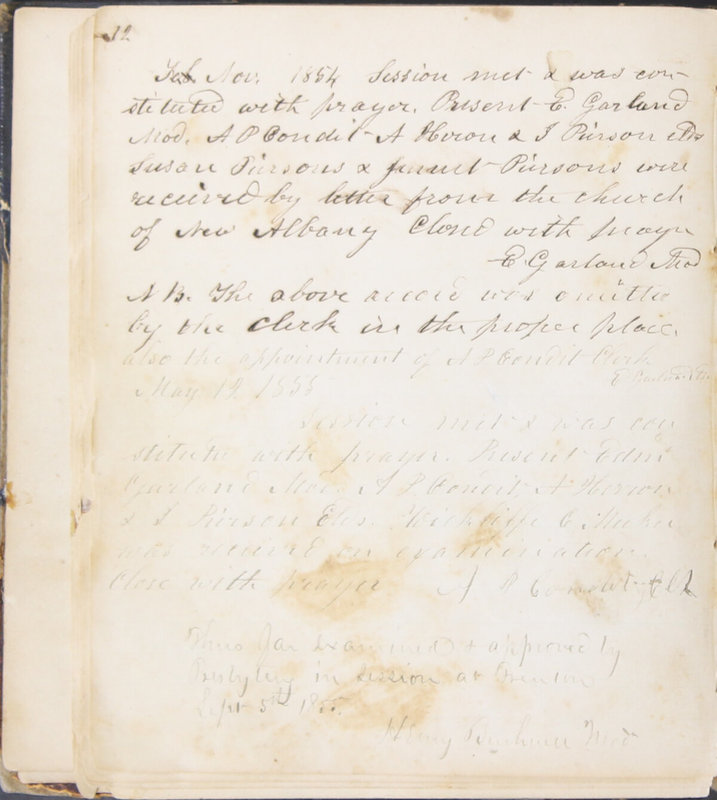 12
Feb Nov. 1854 Session met & was con-
stituted with prayer. Present E. Garland
Mod. A P Condit A Heron & I Pierson elds
Susan Piersons & Piersons were
received by letter from the church
of New Albany Close with prayer
E. Garland Mod
N B. The above record was omitted
by the clerk in the proper place
also the appointment of A P Condit Clerk
E Garland
May 12 1855
Session met & was con
stitute with prayer. Present Edm
Garland Mod. A P Condit, A Herron
& I Pierson Elds. Wickliffe C. Meeker
was received on examination
Close with prayer A P Condit, Clk
Thus far examined & approved by
Presbytery in session at Trenton
Sept 5th 1855.
Henry Mod